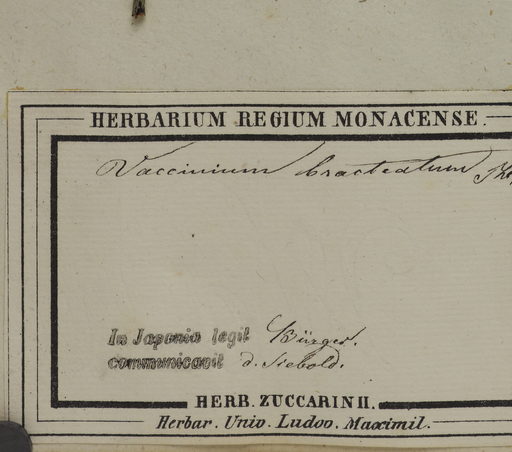 HERBARIUM REGIUM MONACENSE.
Vaccinium bracteatum
In Japonia legit Bürger.
communicavit d. Siebold.
HERB. ZUCCARINII.
Herbar. Univ. Ludov. Maximil.